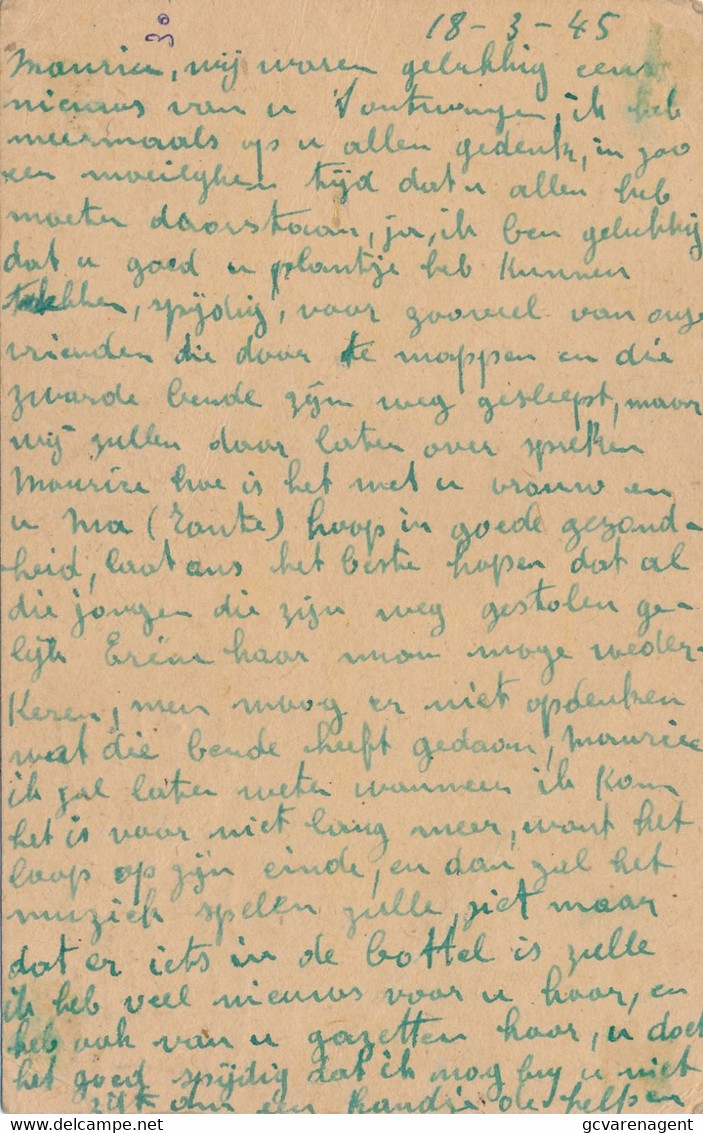 18-3-45
30
Maurice, wij waren gelukkig eens
nieuws van u t'ontvangen, ik heb
meermaals op u allen gedenk, in zoo
een moeilyken tijd dat u allen heb
moeten doorstaan, ja, ik ben gelukkig
dat u goed u plantje heb kunnen
trekken, spijdig, voor zooveel van onze
vrienden die door te mappen en die
zwarde bende zijn weg gesleept, maar
wij zullen daar laten over spreken
Maurice hoe is het met u vrouw en
u Ma (Tante) hoop in goede gezond-
heid, laat ons het beste hopen dat al
die jongen die zijn weg gestolen ge-
lijk haar man moge weder-
keren, men moog er niet opdenken
wat die bende heeft gedaan, Maurice
ik zal laten weten wanneer ik kom
het is voor niet lang meer, want het
loop op zijn einde, en dan zal het
muziek spelen zulle, ziet maar
dat er iets in de bottel is zulle
ik heb veel nieuws voor u hoor, en
heb ook van u gazetten hoor, u doet
het goed spijdig dat ik nog by u niet
zijt om een handje de helpen
delcampe.net
gcvarenagent